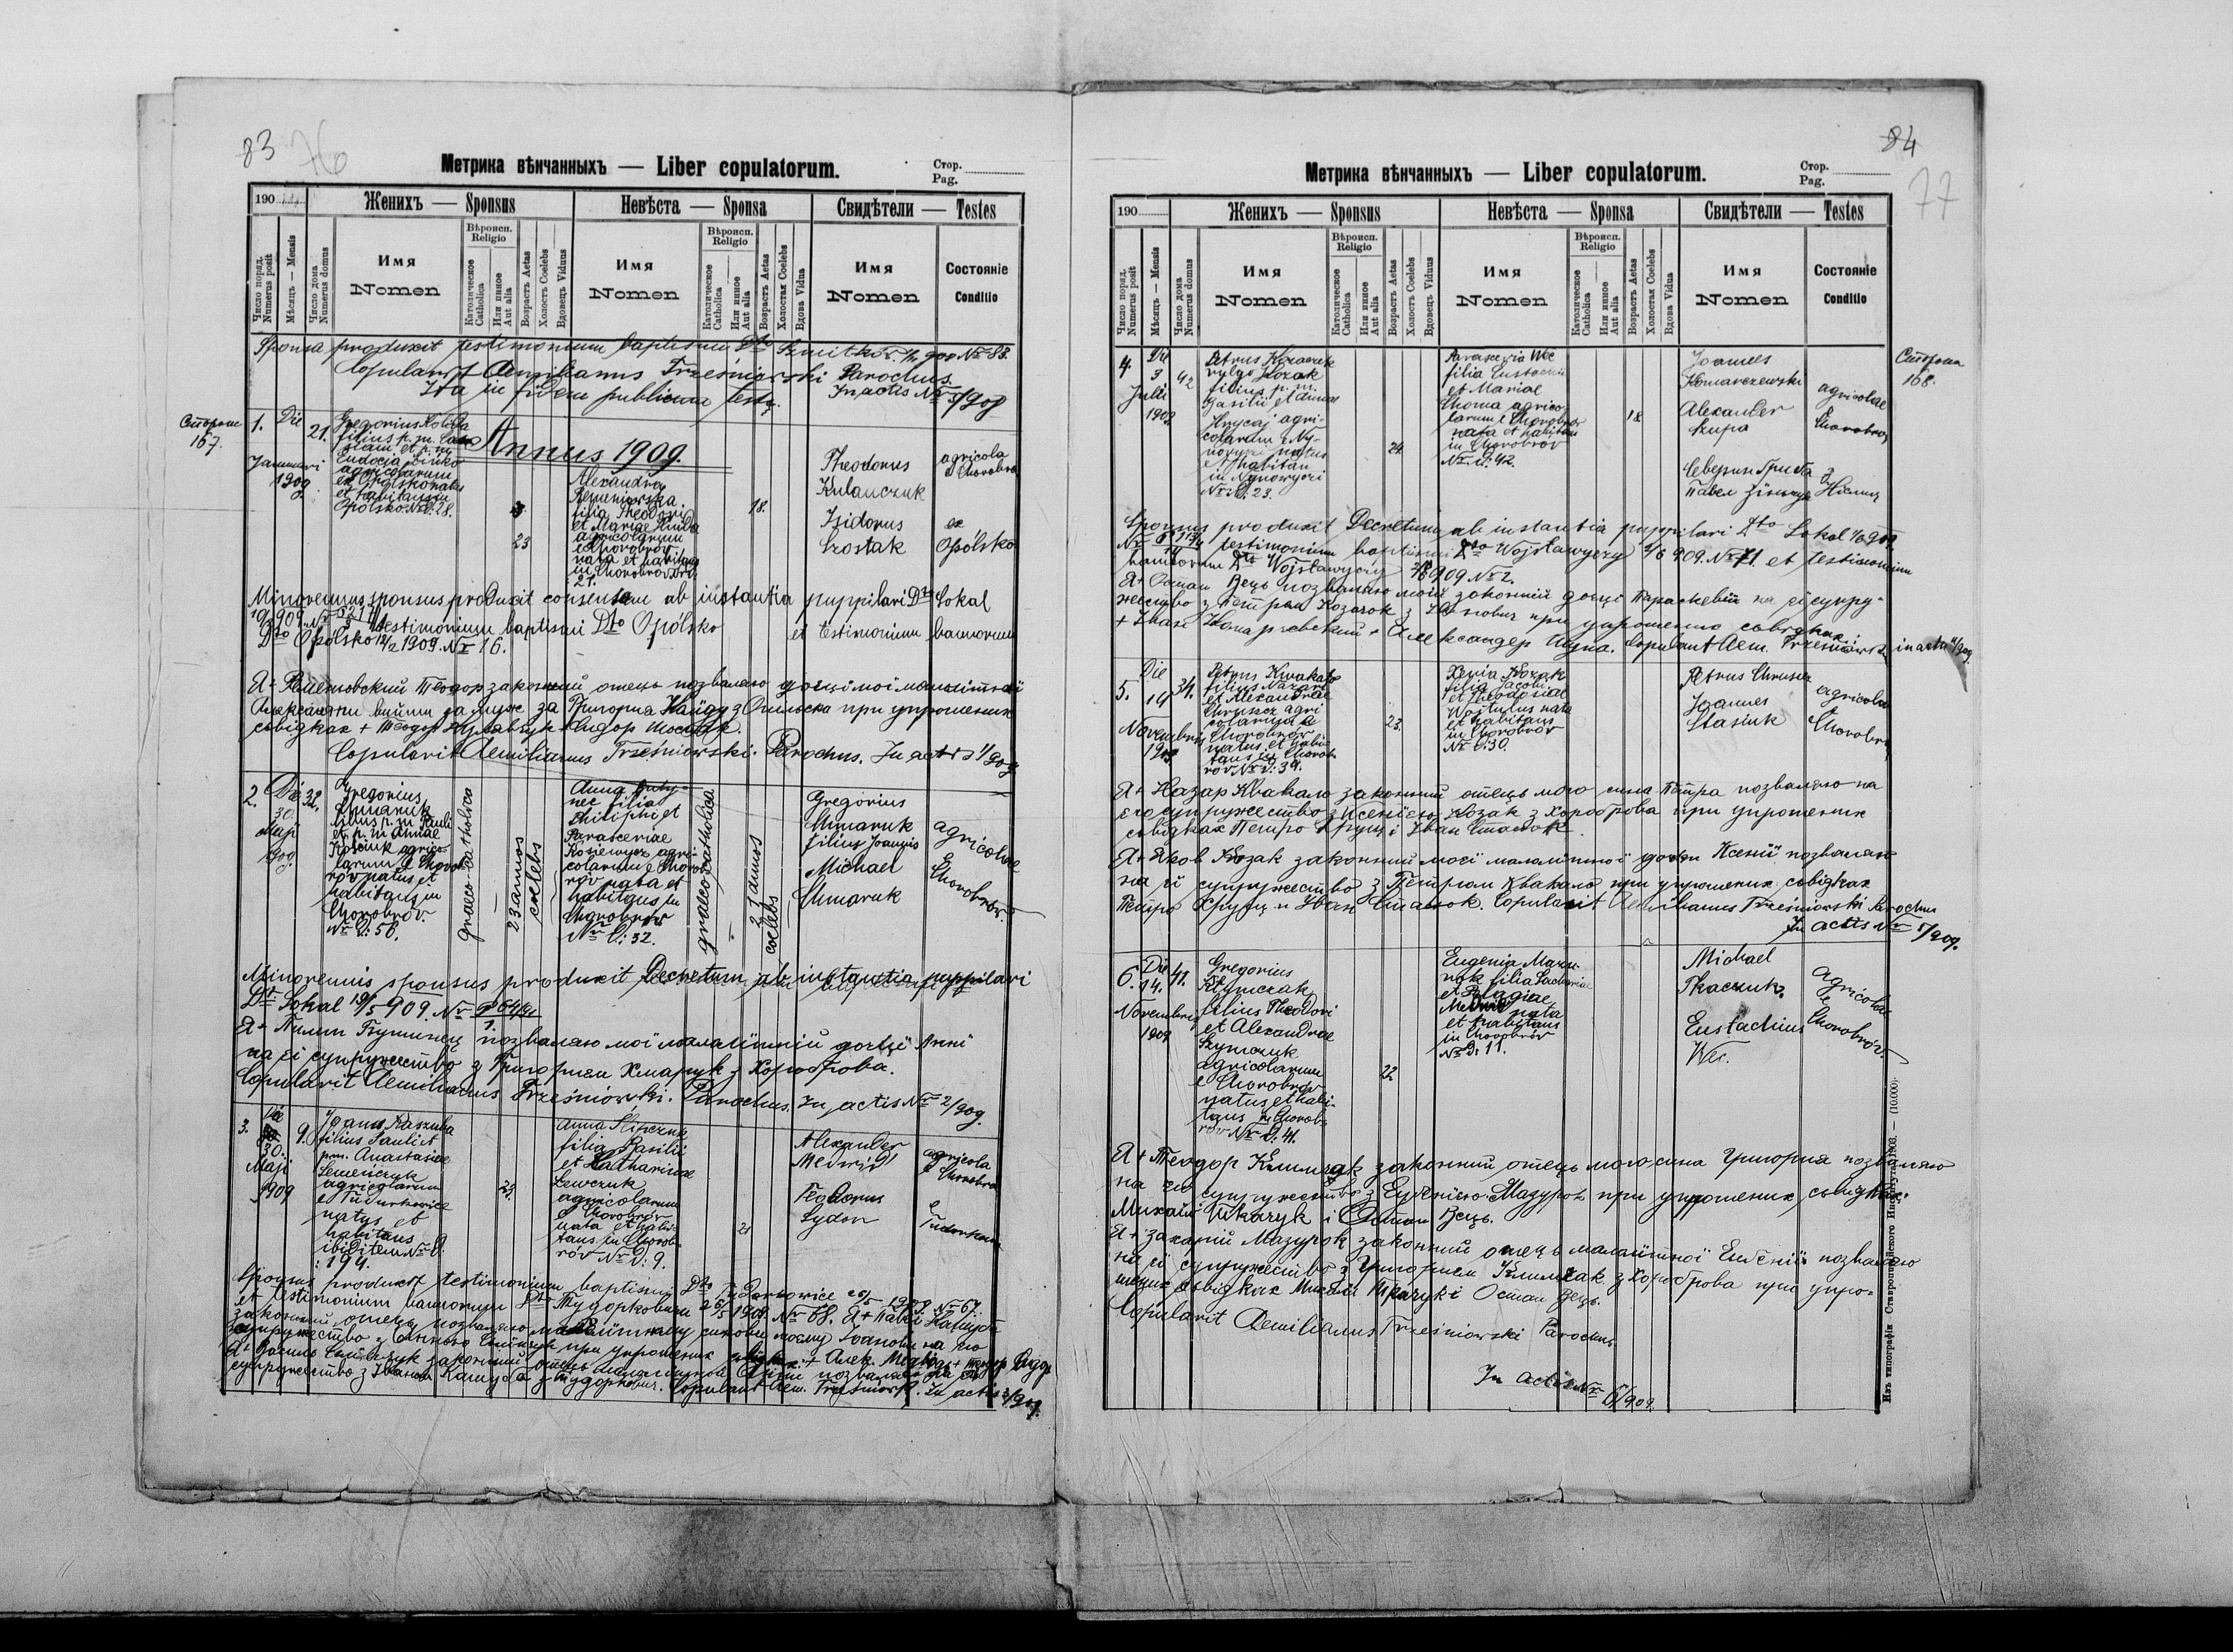 83 76
Метрика вѣнчанныхъ — Liber copulatorum.
Стор.
Pag.
190
Женихъ — Sponsus
Невѣста — Sponsa
Свидѣтели — Testes
Число поряд.
Numerus posit
Мѣсяцъ — Mensis
Число дома
Numerus domus
Имя
Nomen
Вѣроисп.
Religio
Католическое
Catholica
Или инное
Aut alia
Возрастъ Aetas
Холостъ Coelebs
Вдовецъ Viduus
Имя
Nomen
Вѣроисп.
Religio
Католическое
Catholica
Или инное
Aut alia
Возрастъ Aetas
Холостая Coelebs
Вдова Vidua
Имя
Nomen
Состоянiе
Conditio
Sponsa produxit testimonium baptismi Dto 909 No 88.
Copulavit Aemilianus Trześniowski Parochus.
Ita in fidem publicam In actis Nr 5/909
Сторона
167.
1. Die
21.
Januari
1909
Gregorius
filius p. m.
et p. m.
Eudocia
agricolarum
ex Opólsko natus
et habitans in
Opólsko Nr D. 28.
23
Annus 1909.
Alexandra
filia Theodori
et Mariae
agricolarum
e Chorobrów
nata et habitans
in Chorobrów Nr D.
: 21.
18.
Theodorus
Kulanczuk
Isidorus
Szostak
agricola
e Chorobrów
ex
Opólsko
Minorennus sponsus produxit consensum ab instantia puppilari Dto Sokal
testimonium baptismi Dto Opólsko et testimonium bannorum
Dto Opólsko 12/2 1909. Nr 16.
Я + Теодор законний отець позваляю доцї моїй малолїтнїй
Александри вийти за муж за Григория з Опільска при упрошених
сьвідках + Теодор + Сидор Шостак.
Copulavit Aemilianus Trześniowski. Parochus. In actis 1/909
2. Die 32.
30.
Maji
1909.
Gregorius
Chmaruk
filius p. m. Pauli
et p. m. Annae
Kościuk agrico-
larum e Chorob-
rów natus et
habitans in
Chorobrów.
Nr D: 56.
graeco-catholica
23 annos
coelebs
Anna
filia
Philiphi et
Parasceviae
Kosiewycz agri-
colarum e Chorob-
rów nata et
habitans in
Chorobrów
Nr D: 32.
graeco-catholica.
21 annos
coelebs
Gregorius
Chmaruk
filius Joannis
Michael
Chmaruk
agricolae
e
Chorobrów.
Minorennis sponsus produxit Decretum ab instantia puppilari
Dto Sokal 19/5 909. Nr
Я + Пилип позваляю мої малолїтнїй дочцї Аннї
на єї супружество з Григорием Хмарук з Хороброва.
Copulavit Aemilianus Trześniowski. Parochus. In actis Nr 2/909.
3. Die
30. 9.
Maji
1909
Joannes Kaszuba
filius Pauli et
p. m. Anastasiae
Semeńczyk
agricolarum
e Tudorkowice
natus et
habitans
ibiditem Nr D.
: 194.
Anna Slipczuk
filia Basilii
et Catharinae
Lewczuk
agricolarum
e Chorobrów
nata et habi-
tans in Chorob-
rów Nr D: 9.
21
Alexander
Medwid
Teodorus
Sydor
agricola
e Chorobrów
e
Tudorkow.
Sponsus produxit testimonium baptismi Dto Tudorkowice 26/5 1909 Nr 67.
et testimonium bannorum Dto Тудорковичи 26/5 1909. Nr 68. Я + Павел Кашуба
законний отець позваляю малолїтному синови моєму Іванови на єго
супружество з Анною при упрошених сьвідках + Алек. Медвідь + Теодор Сидор
Я + Василь законний отець малолїтної Анни позваляю на єї
супружество з Іваном Кашуба з Тудоркович. Copulavit Aem. Trześniowski. In actis 3/909.
84
77
Метрика вѣнчанныхъ — Liber copulatorum.
Стор.
Pag.
190
Женихъ — Sponsus
Невѣста — Sponsa
Свидѣтели — Testes
Число поряд.
Numerus posit
Мѣсяцъ — Mensis
Число дома
Numerus domus
Имя
Nomen
Вѣроисп.
Religio
Католическое
Catholica
Или инное
Aut alia
Возрастъ Aetas
Холостъ Coelebs
Вдовецъ Viduus
Имя
Nomen
Вѣроисп.
Religio
Католическое
Catholica
Или инное
Aut alia
Возрастъ Aetas
Холостая Coelebs
Вдова Vidua
Имя
Nomen
Состоянiе
Conditio
Сторона
168.
4. Die
3 42
Juli
1909
Petrus Kozaczuk
vulgo Kozak
filius p. m.
Basilii et Annae
Hrycaj agri-
colarum e Ny-
nowyci natus
et habitans
in Nynowyci
Nr D: 23.
24.
Parascevia Wec
filia Eustachii
et Mariae
Choma agrico-
larum e Chorobrów
nata et habitans
in Chorobrów
Nr D: 42.
18
Joannes
Komarczewski
Alexander
Szupa
Северин Гриба
Павел
agricolae
e
Chorobrów
Sponsus produxit Decretum ab instantia puppilari Dto Sokal
testimonium baptismi Dto Wojsławyczy 2/6 909. Nr 71. et testimonium
bannorum Dto Wojsławyczy 909 Nr 2.
Я + Остап Вець позваляю моїй законній доцї Параскевії на єї супру-
жество з Петром Козачок з при упрошених сьвідках:
+ Іван Комарчевский + Александер Шупа. Copulavit Aem. Trześniowski in actis 4/909.
Die
5. 14 34.
Novembris
1909
Petrus Kwakało
filius Nazarii
et Alexandrae
Chrusez agri-
colarum e
Chorobrów
natus et habi-
tans in Chorob-
rów Nr D: 34.
23.
Xenia Kozak
filia Jacobi
et Theodosiae
Wojtulus nata
et habitans
in Chorobrów
Nr D: 30.
Petrus Chrusez
Joannes
Stasiuk
agricolae
e
Chorobrów
Я + Назар Квакало законний отець мого сина Петра позваляю на
єго супружество з Ксенією Козак з Хороброва при упрошених
сьвідках Петро Хрущ і Іван Сташок.
Я + Яков Козак законний моєї малолїтної дочки Ксенії позваляю
на єї супружество з Петром Квакало при упрошених сьвідках
Петро Хрущ и Іван Сташок. Copulavit Aemilianus Trześniowski Parochus
In actis Nr 5/909.
6. Die 41.
14.
Novembris
1909
Gregorius
Klymczak
filius Theodori
et Alexandrae
Szymczuk
agricolarum
e Chorobrów
natus et habi-
tans in Chorob-
rów Nr D. 41.
22
Eugenia Mazu-
rok filia Zachariae
et Pelagiae
Medwid nata
et habitans
in Chorobrów
Nr D: 11.
Michael
Tkaczuk.
Eustachius
Wec.
agricolae
e
Chorobrów.
Я + Теодор Климчак законний отець мого сина Григория позваляю
на єго супружество з Евгенією Мазурок при упрошених сьвідках:
Михаїл Ткачук і Остап Вець.
Я + Захарій Мазурок законний отець малолїтної Евгенії позваляю
на єї супружество з Григорием Климчак з Хороброва при упро-
шених сьвідках Михаїл Ткачук і Остап Вець.
Copulavit Aemilianus Trześniowski Parochus.
In actis Nr 6/909.
Изъ типографiи Ставропигiйского Института 1908. — (10.000).